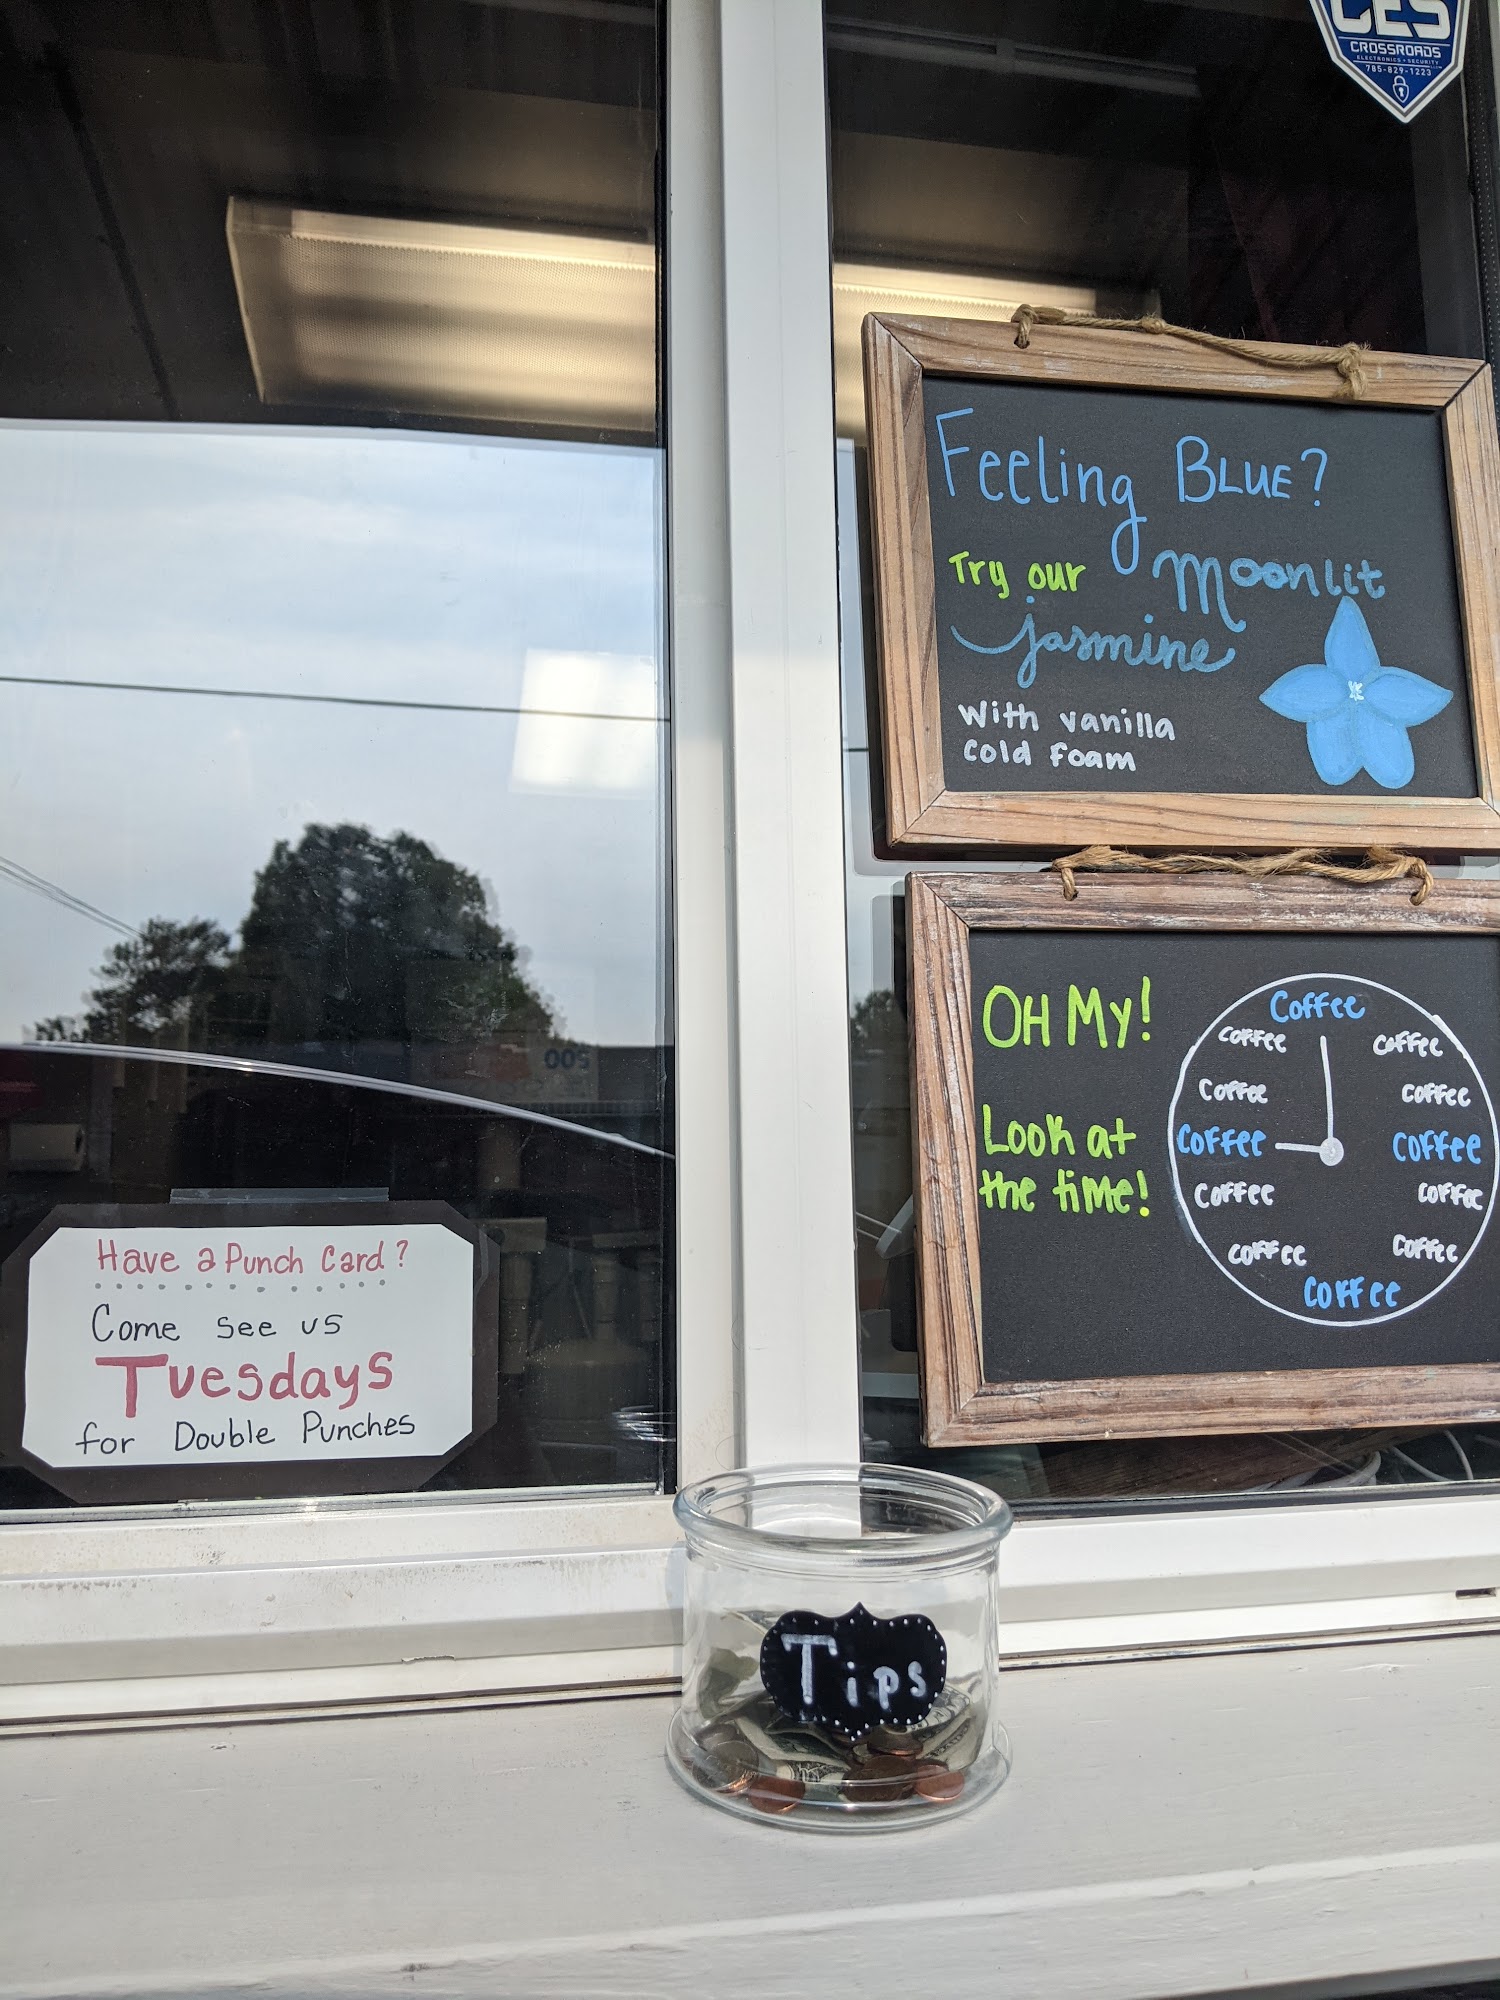 CES
CROSSROADS
ELECTRONICS • SECURITY
785-829-1223
Feeling BLUE?
Try our Moonlit
jasmine
with vanilla
cold foam
OH MY!
Look at
the time!
Coffee
Coffee
Coffee
Coffee
Coffee
Coffee
Coffee
Coffee
Coffee
Coffee
Coffee
Coffee
Have a Punch Card?
Come see us
Tuesdays
for Double Punches
Tips